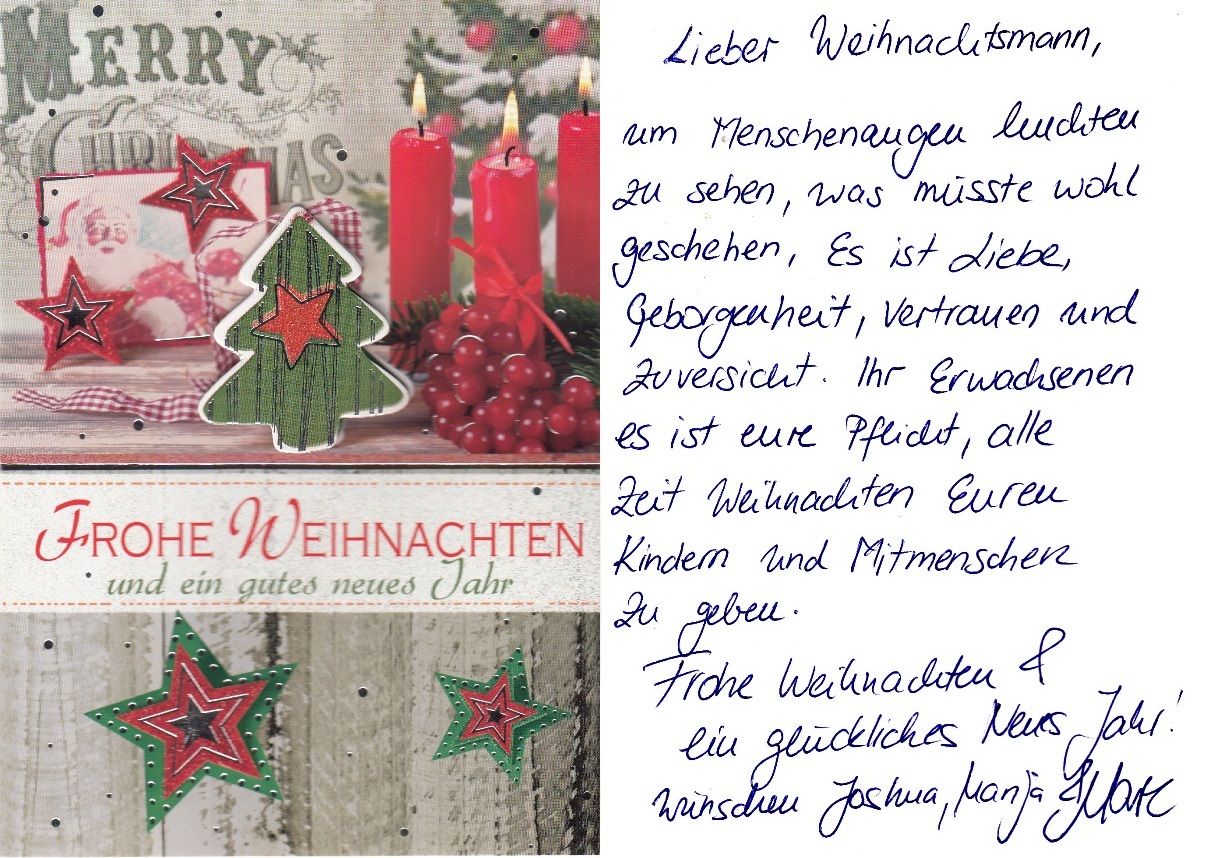 MERRY
CHRISTMAS
FROHE WEIHNACHTEN
und ein gutes neues Jahr
Lieber Weihnachtsmann,
um Menschenaugen leuchten
zu sehen, was müsste wohl
geschehen, Es ist Liebe,
Geborgenheit, Vertrauen und
Zuversicht. Ihr Erwachsenen
es ist eure Pflicht, alle
Zeit Weihnachten Euren
Kindern und Mitmenschen
zu geben.
Frohe Weihnachten &
ein glückliches Neues Jahr!
wünschen Joshua, Manja & Marc